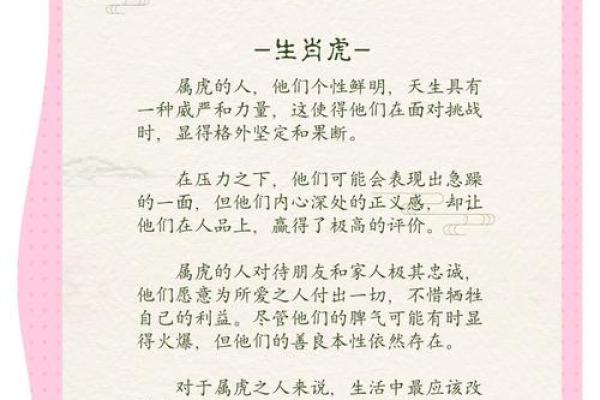 －生肖虎－
属虎的人，他们个性鲜明，天生具有
一种威严和力量，这使得他们在面对挑战
时，显得格外坚定和果断。
在压力之下，他们可能会表现出急躁
的一面，但他们内心深处的正义感，却让
他们在人品上，赢得了极高的评价。
属虎的人对待朋友和家人极其忠诚，
他们愿意为所爱之人付出一切，不惜牺牲
自己的利益。尽管他们的脾气可能有时显
得火爆，但他们的善良本性依然存在。
对于属虎之人来说，生活中最应该改